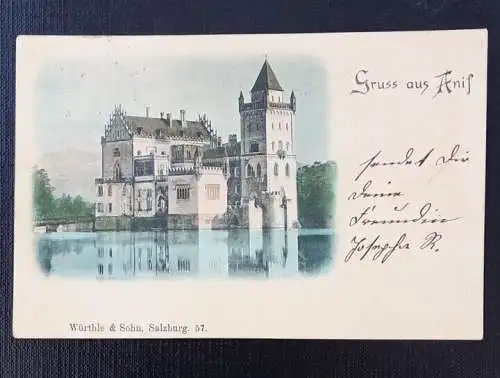 Gruss aus Anif
sendet Dir
Deine
Freundin
Josephe R.
Würthle & Sohn, Salzburg. 57.